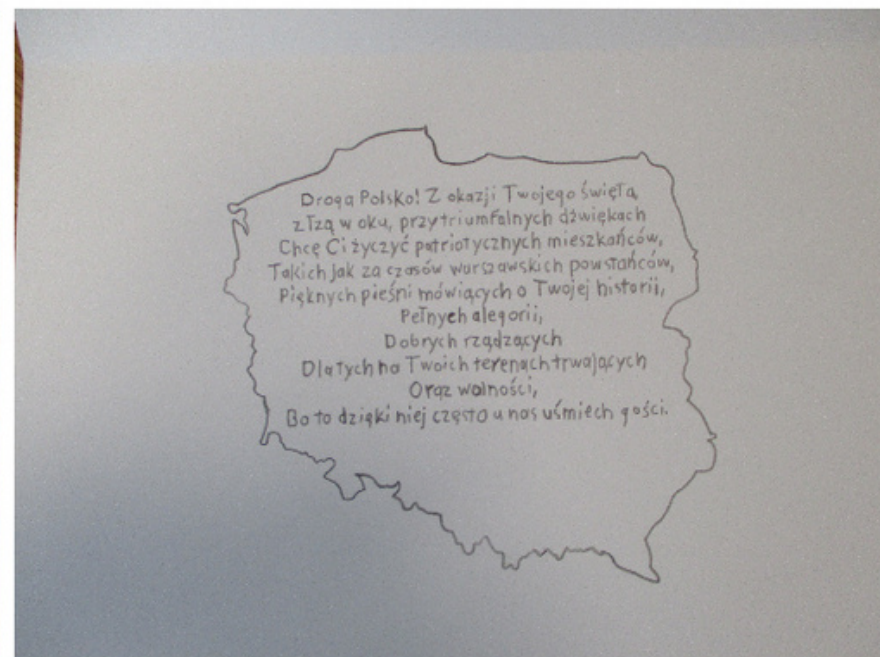 Droga Polsko! Z okazji Twojego święta,
z łzą w oku, przy triumfalnych dźwiękach
Chcę Ci życzyć patriotycznych mieszkańców,
Takich jak za czasów warszawskich powstańców,
Pięknych pieśni mówiących o Twojej historii,
Pełnych alegorii,
Dobrych rządzących
Dla tych na Twoich terenach trwających
Oraz wolności,
Bo to dzięki niej często u nas uśmiech gości.